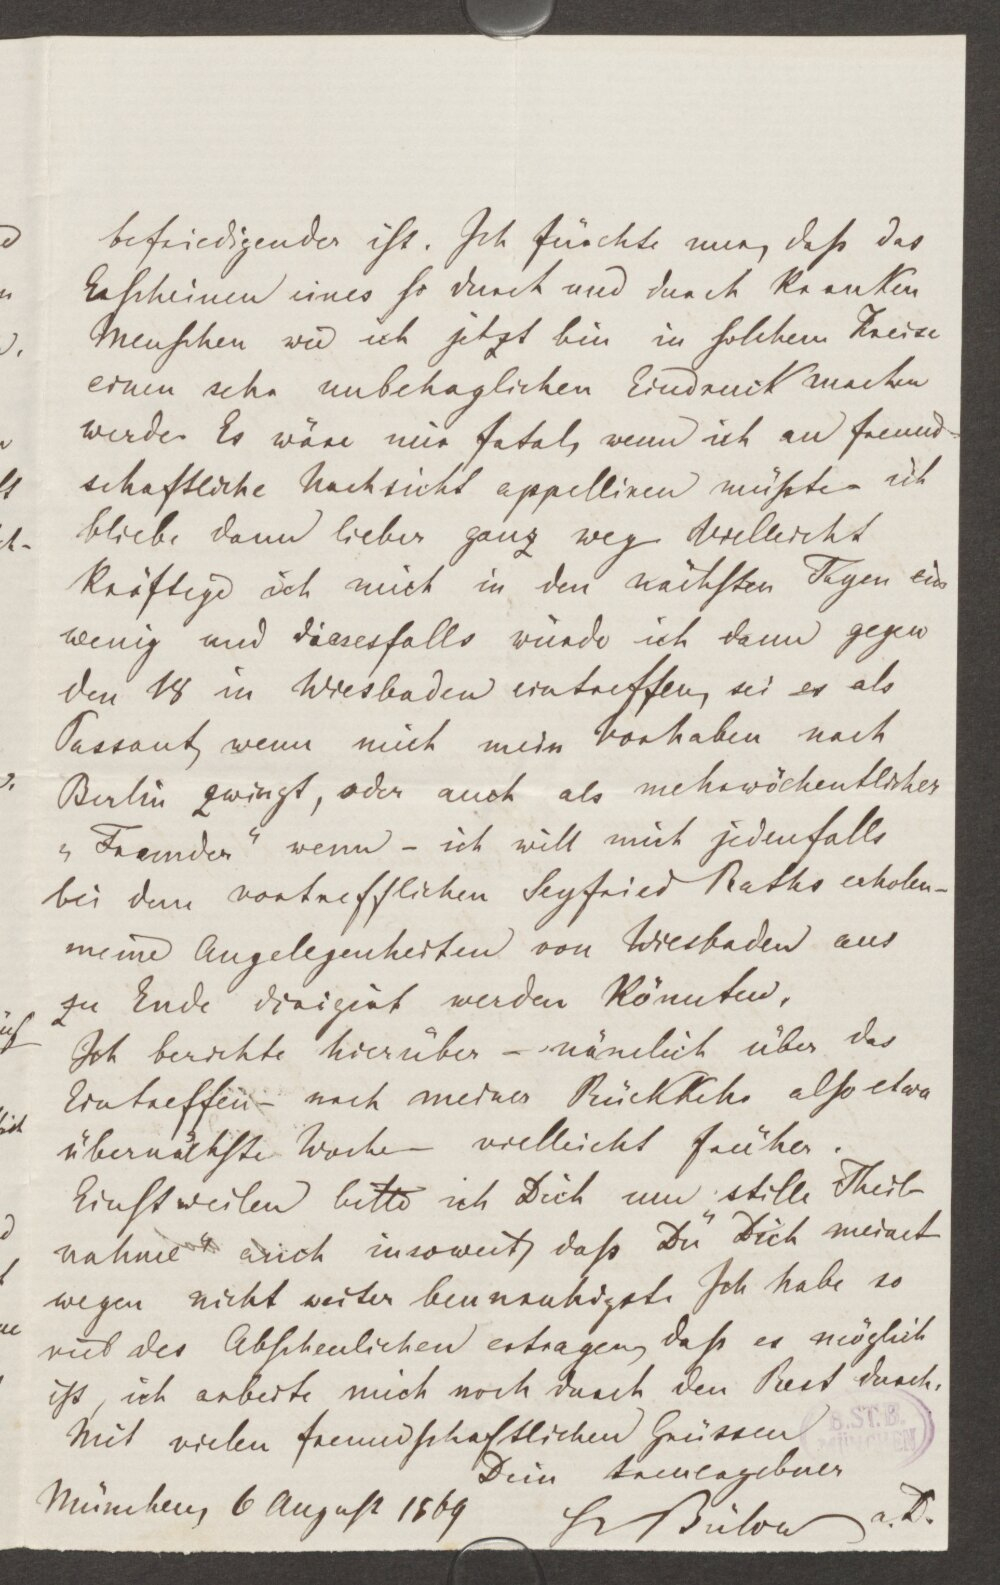 befriedigender ist. Ich fürchte nur, daß das
Erscheinen eines so durch und durch kranken
Menschen wie ich jetzt bin in solchem Kreise
einen sehr unbehaglichen Eindruck machen
werde. Es wäre mir fatal, wenn ich an freund-
schaftliche Nachsicht appelliren müßte – ich
bliebe dann lieber ganz weg. Vielleicht
kräftige ich mich in den nächsten Tagen ein
wenig und diesesfalls würde ich dann gegen
den 18 in Wiesbaden eintreffen, sei es als
Passant, wenn mich mein Vorhaben nach
Berlin zwingt, oder auch als mehrwöchentlicher
„Fremder“ wenn – ich will mich jedenfalls
bei dem vortrefflichen Seyfried Raths erholen –
meine Angelegenheiten von Wiesbaden aus
zu Ende dirigirt werden könnten.
Ich berichte hierüber – nämlich über das
Eintreffen – nach meiner Rückkehr also etwa
übernächste Woche – vielleicht früher.
Einstweilen bitte ich Dich um „stille Theil-
nahme“ auch insoweit, daß Du Dich meinet
wegen nicht weiter beunruhigst. Ich habe so
viel des Abscheulichen ertragen, daß es möglich
ist, ich arbeite mich noch durch den Rest durch.
Mit vielen freundschaftlichen Grüssen
Dein treuergebner
München, 6 August 1869
Bülow a. D.
B.ST.B.
MÜNCHEN